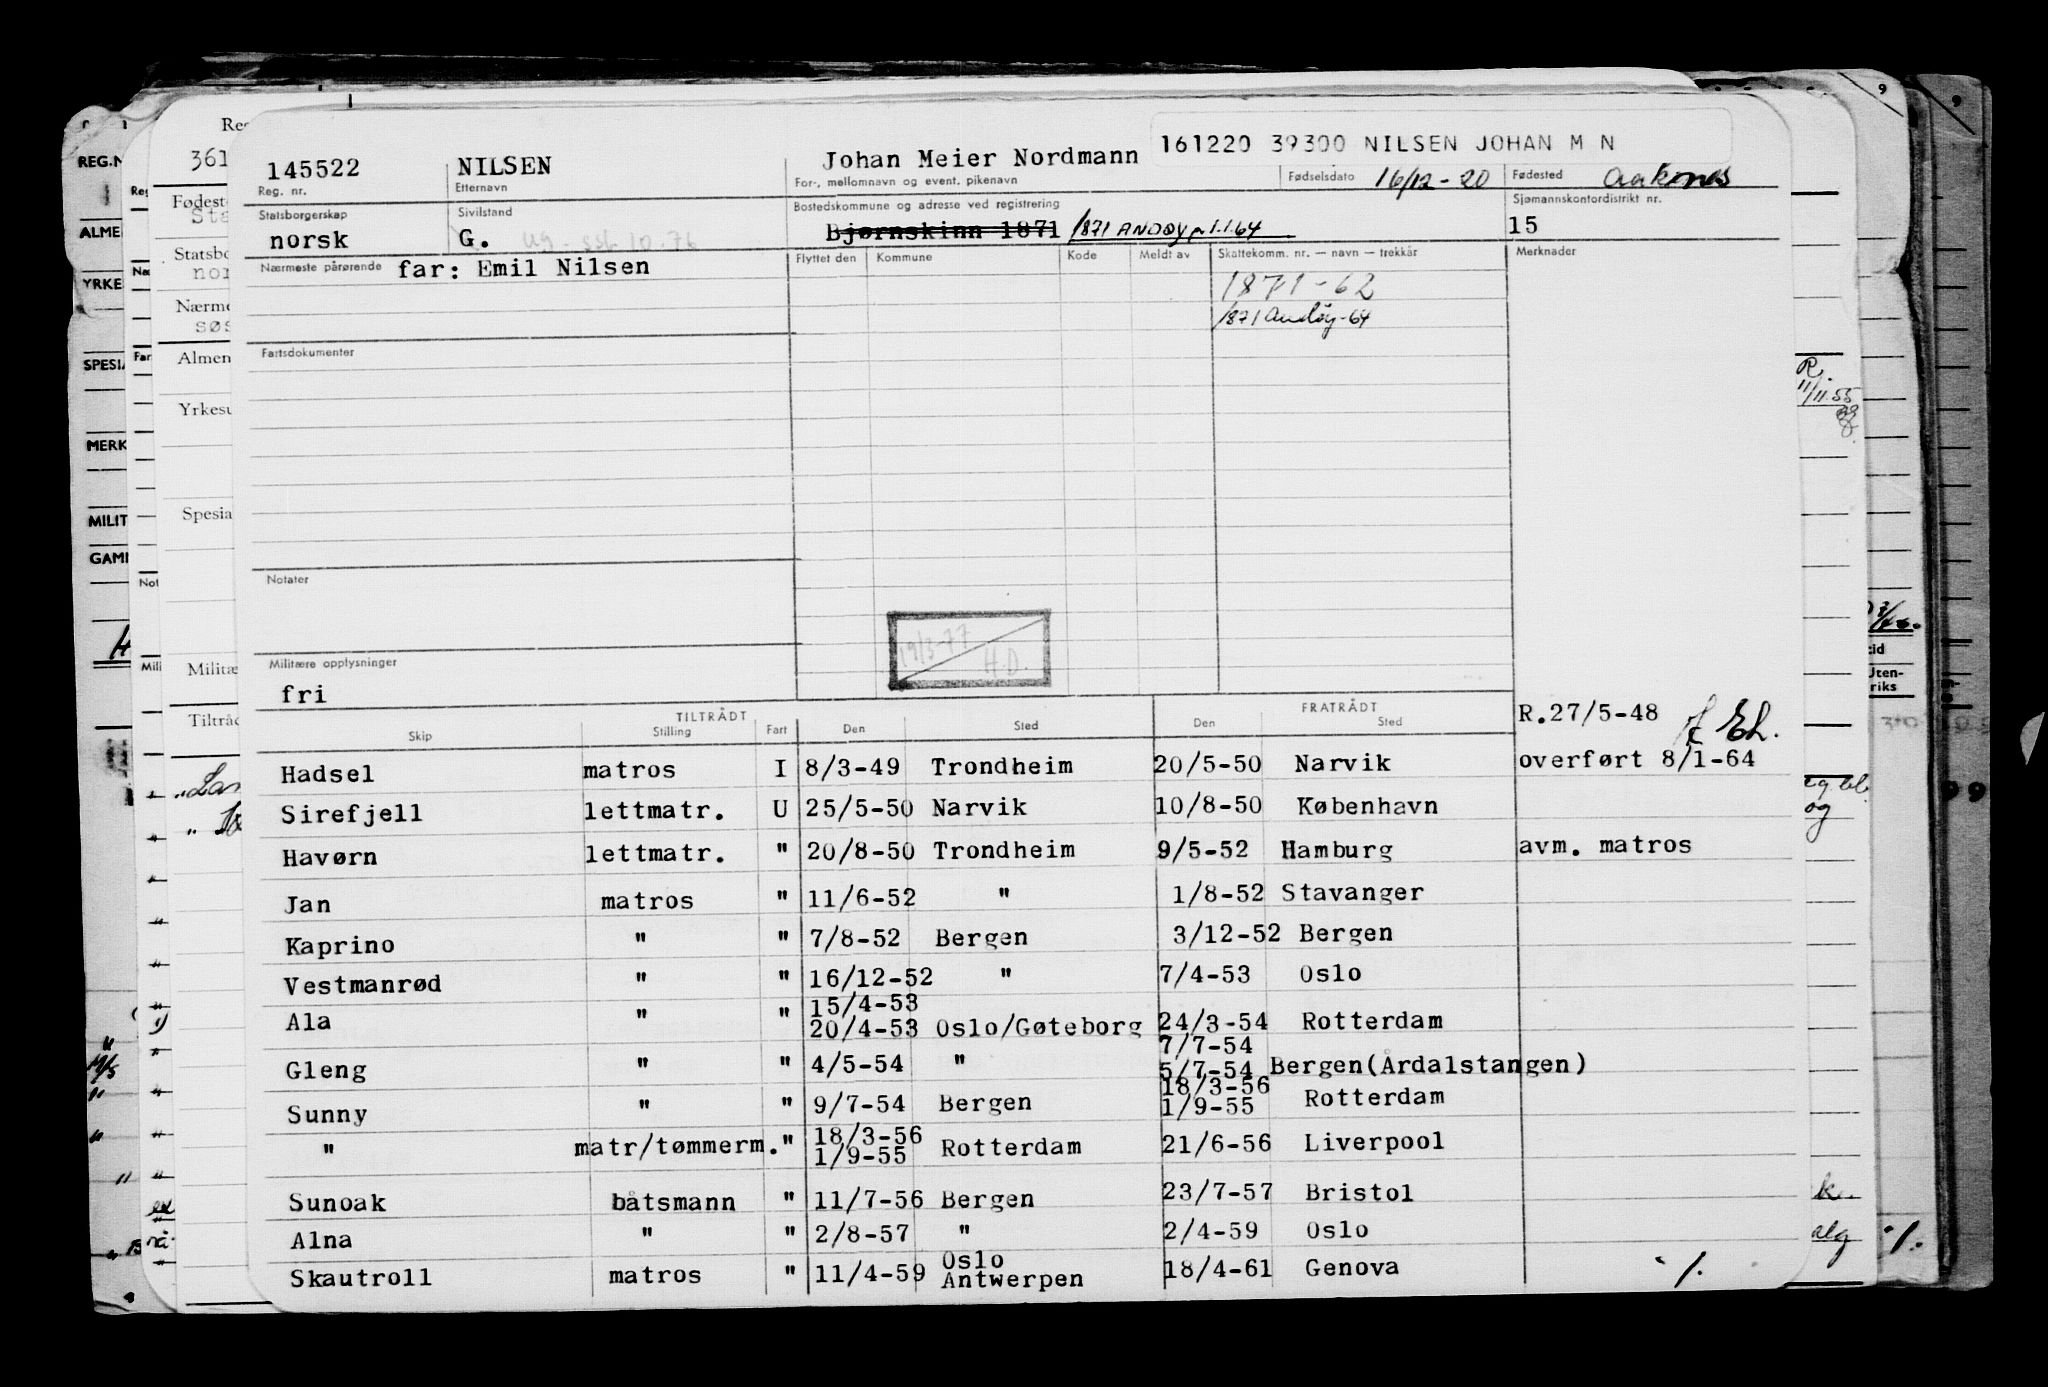 161220 39300 NILSEN JOHAN M N
145522 NILSEN Johan Meier Nordmann
Reg. nr. Etternavn For-, mellomnavn og event. pikenavn Fødselsdato 16/12-20 Fødested Aaknes
Statsborgerskap Sivilstand Bostedskommune og adresse ved registrering Sjømannskontordistrikt nr.
norsk G. ug. Bjørnskinn 1871 1871 ANDØY pr 1.1.64 15
Nærmeste pårørende far: Emil Nilsen Flyttet den Kommune Kode Meldt av Skattekomm. nr. — navn — trekkår Merknader
1871-62
1871 Andøy-64
Fartsdokumenter
Notater
19/3-77
H.D.
Militære opplysninger
fri
TILTRÅDT FRATRÅDT R.27/5-48
Skip Stilling Fart Den Sted Den Sted
Hadsel matros I 8/3-49 Trondheim 20/5-50 Narvik overført 8/1-64
Sirefjell lettmatr. U 25/5-50 Narvik 10/8-50 København
Havørn lettmatr. " 20/8-50 Trondheim 9/5-52 Hamburg avm. matros
Jan matros " 11/6-52 " 1/8-52 Stavanger
Kaprino " " 7/8-52 Bergen 3/12-52 Bergen
Vestmanrød " " 16/12-52 " 7/4-53 Oslo
15/4-53
Ala " " 20/4-53 Oslo/Gøteborg 24/3-54 Rotterdam
7/7-54
Gleng " " 4/5-54 " 5/7-54 Bergen(Årdalstangen)
18/3-56
Sunny " " 9/7-54 Bergen 1/9-55 Rotterdam
18/3-56
" matr/tømmerm. " 1/9-55 Rotterdam 21/6-56 Liverpool
Sunoak båtsmann " 11/7-56 Bergen 23/7-57 Bristol
Alna " " 2/8-57 " 2/4-59 Oslo
Oslo
Skautroll matros " 11/4-59 Antwerpen 18/4-61 Genova